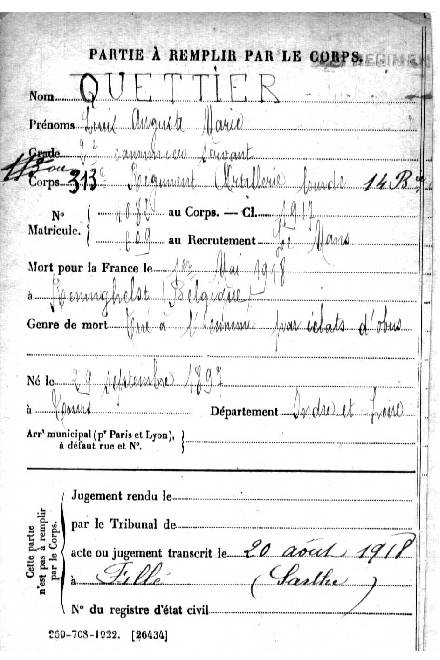 PARTIE À REMPLIR PAR LE CORPS.
Nom QUETTIER
Prénoms Louis Auguste Marie
Grade 2e canonnier servant
Corps 313e Régiment Artillerie lourde 14 B
N° Matricule. { au Corps. — Cl. 1917
609 au Recrutement Le Mans
Mort pour la France le 1er Mai 1918
à Reninghelst (Belgique)
Genre de mort Tué à l'ennemi par éclats d'obus
Né le 29 septembre 1897
à Tours Département Indre et Loire
Arrt municipal (pr Paris et Lyon), à défaut rue et N°. }
Cette partie n'est pas à remplir par le Corps.
Jugement rendu le
par le Tribunal de
acte ou jugement transcrit le 20 août 1918
à Fillé (Sarthe)
N° du registre d'état civil
260-708-1922. [26434]